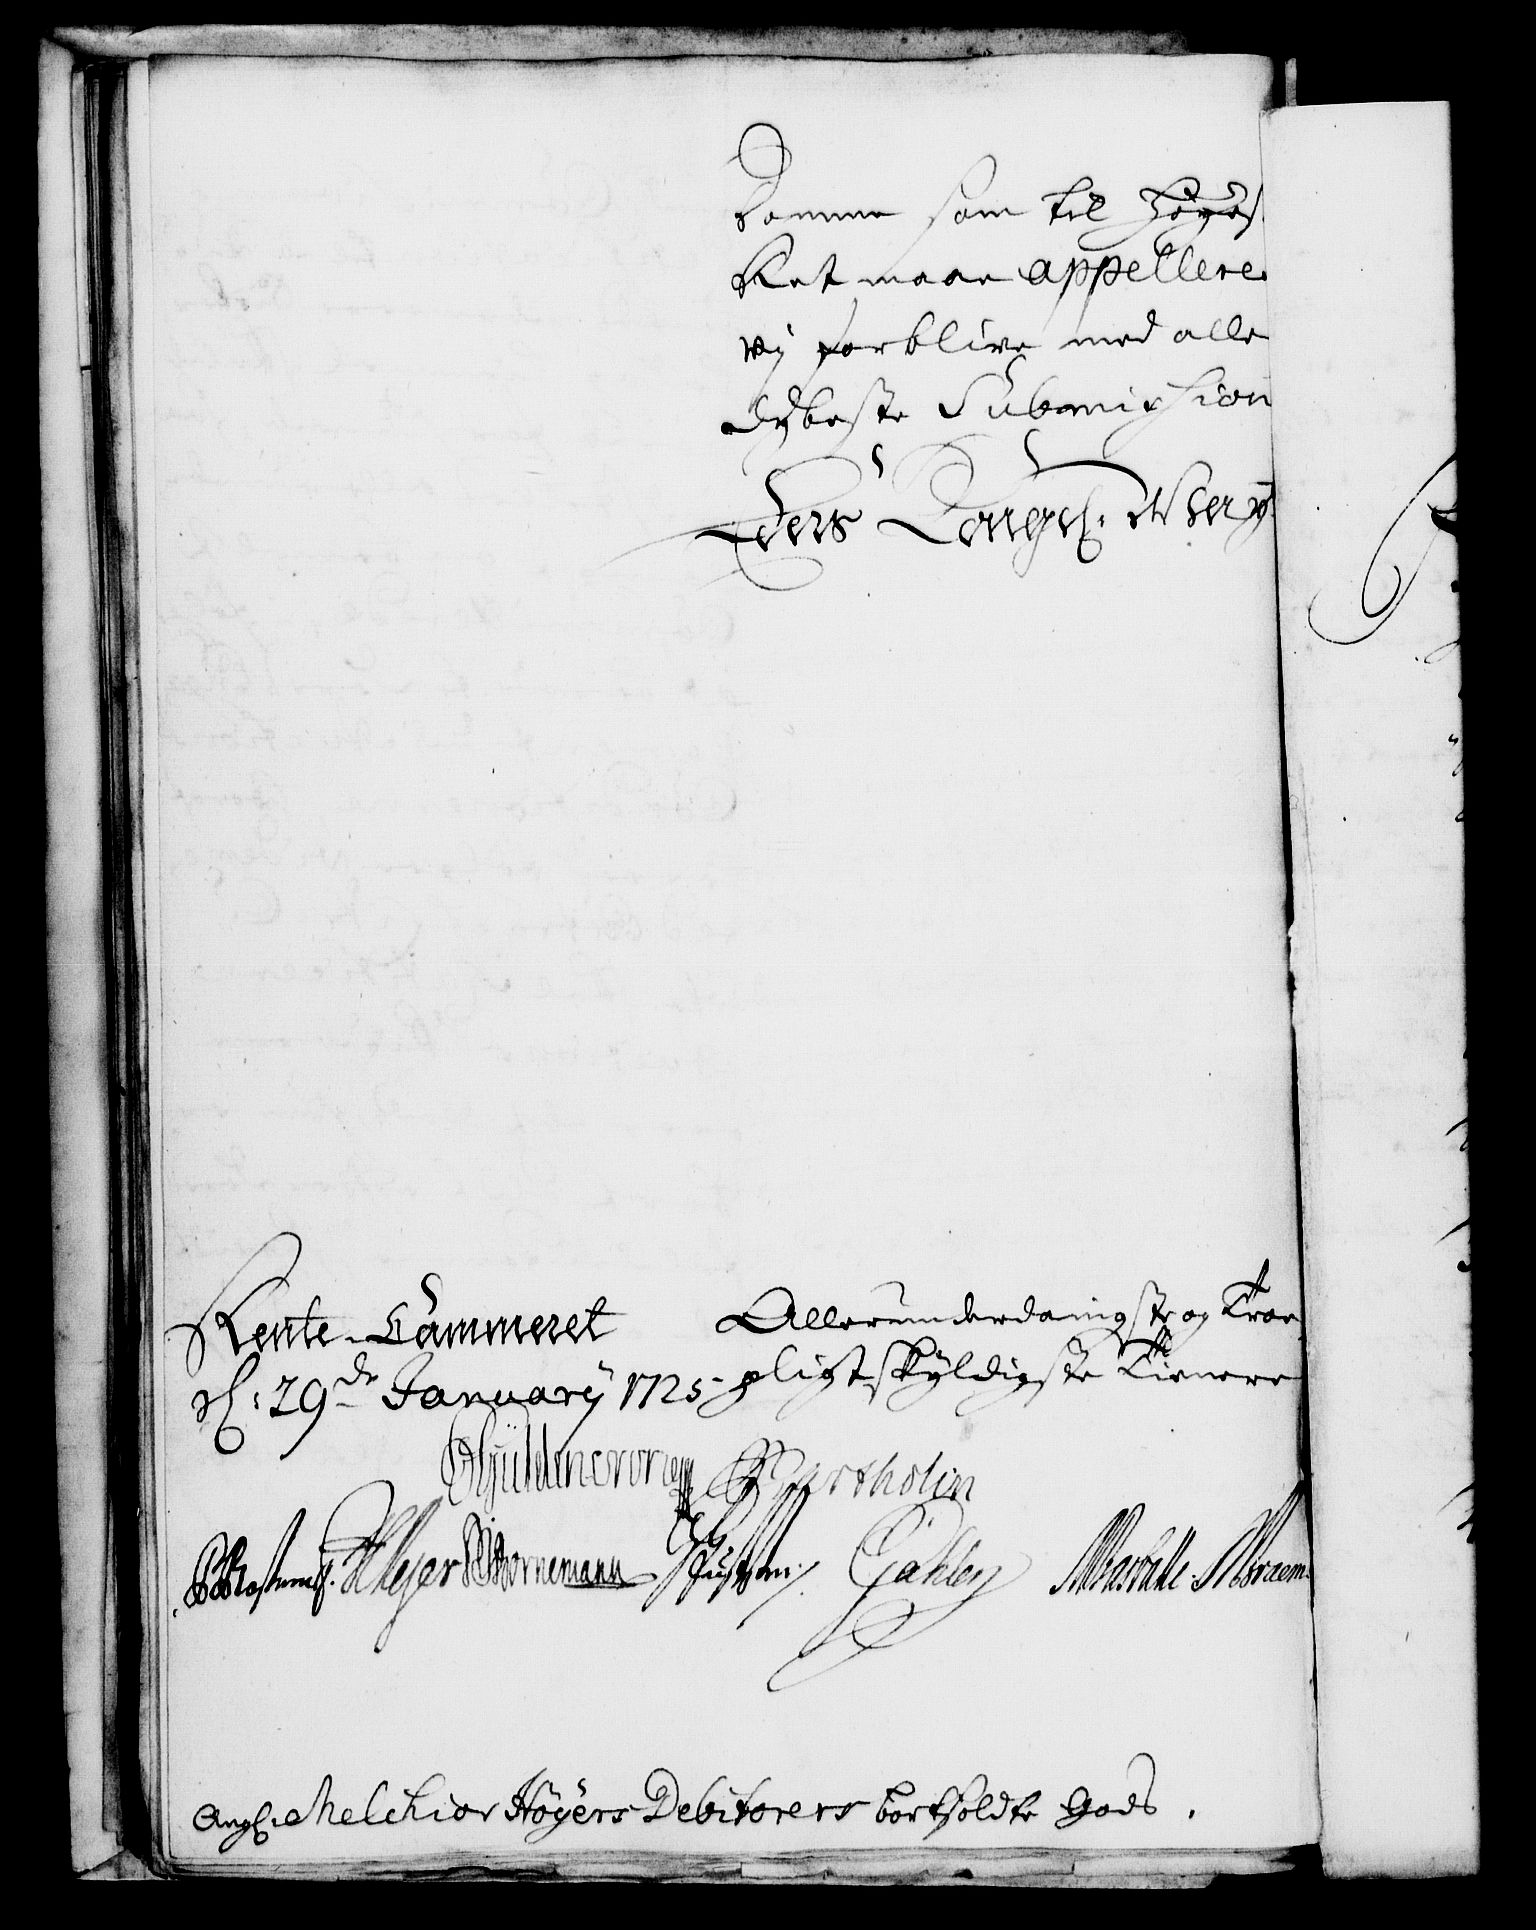 Domme som til Høyes
Ret maae appellere
vij forblive med alle
dybeste Submission
Eders Kongel: May
Rente-Cammeret
d: 29de January 1725
Allerunderdanigste og Troe
pligtskÿldigste Tienere
Güldencrone Bartholin
Meyer Bornemann
Gahler
Angl: Melchior Høÿers Debitorers bortsoldte Gods.